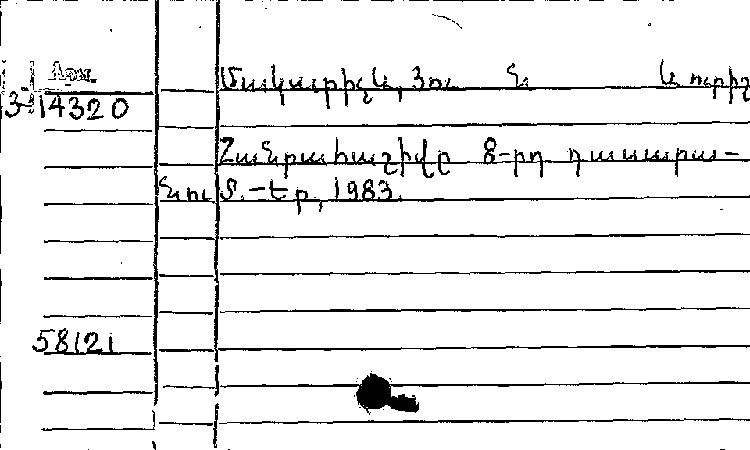 Արմ.
Մակարիչև, Յու. Ն. և ուրիշ
3-14320
Հանրահաշիվը 8-րդ դասարա-
նում.-Եր, 1983.
58121